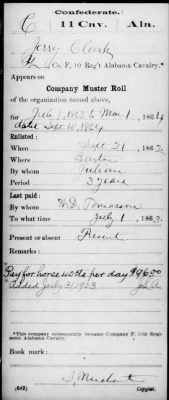 Confederate.
C 11 Cav. Ala.
Jerry Clark
Co. F, 10 Reg't Alabama Cavalry.*
Appears on
Company Muster Roll
of the organization named above,
for July 1, 1863 to Mar. 1, 1864
dated Sept 10, 1864
Enlisted:
When Sept 21, 1862
Where Barton
By whom Julian
Period 3 years
Last paid:
By whom W.D. Tomasson
To what time July 1, 1863
Present or absent Present
Remarks:
Pay for horse 40cts per day $96.00
added July 31, 1963
*This company subsequently became Company F, 11th Regiment Alabama Cavalry.
Book mark:
(642) Copyist.